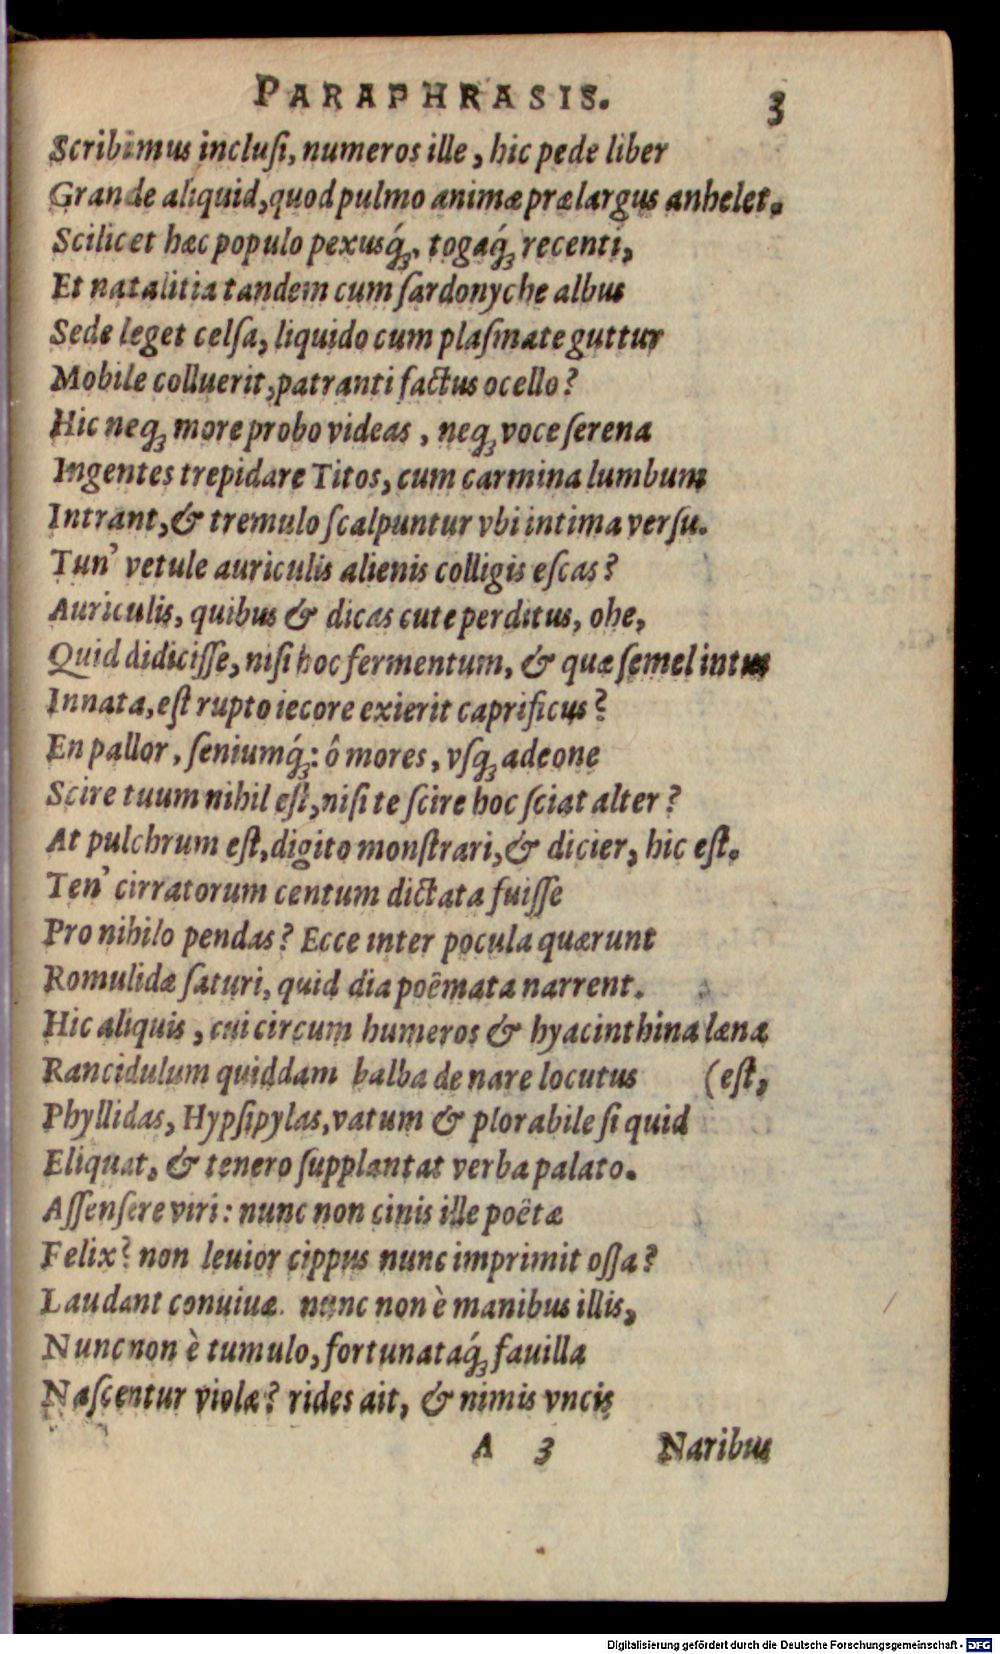 PARAPHRASIS. 3
Scribimus inclusi, numeros ille, hic pede liber
Grande aliquid, quod pulmo animæ prælargus anhelet.
Scilicet hæc populo pexusq́ꝫ, togaq́ꝫ recenti,
Et natalitia tandem cum sardonyche albus
Sede leget celsa, liquido cum plasmate guttur
Mobile colluerit, patranti factus ocello?
Hic neqꝫ more probo videas, neqꝫ voce serena
Ingentes trepidare Titos, cum carmina lumbum
Intrant, & tremulo scalpuntur vbi intima versu.
Tun' vetule auriculis alienis colligis escas?
Auriculis, quibus & dicas cute perditus, ohe,
Quid didicisse, nisi hoc fermentum, & quæ semel intus
Innata, est rupto iecore exierit caprificus?
En pallor, seniumq́ꝫ: ô mores, vsqꝫ adeone
Scire tuum nihil est, nisi te scire hoc sciat alter?
At pulchrum est, digito monstrari, & dicier, hic est.
Ten' cirratorum centum dictata fuisse
Pro nihilo pendas? Ecce inter pocula quærunt
Romulidæ saturi, quid dia poêmata narrent.
Hic aliquis, cui circum humeros & hyacinthina læna
Rancidulum quiddam balba de nare locutus (est,
Phyllidas, Hypsipylas, vatum & plorabile si quid
Eliquat, & tenero supplantat verba palato.
Assensere viri: nunc non cinis ille poêtæ
Felix? non leuior cippus nunc imprimit ossa?
Laudant conuiuæ. nunc non è manibus illis,
Nunc non è tumulo, fortunataq́ꝫ fauilla
Nascentur violæ? rides ait, & nimis vncis
A 3 Naribus
Digitalisierung gefördert durch die Deutsche Forschungsgemeinschaft - DFG